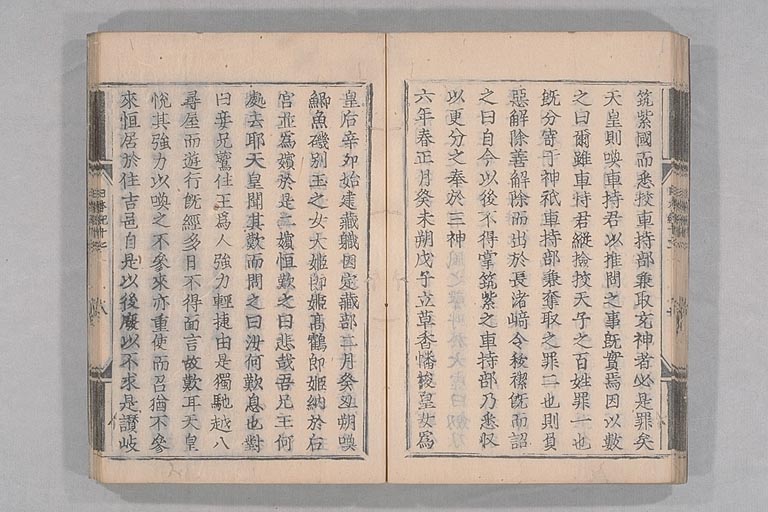 筑紫國而悉挍車持部兼取充神者必是罪矣
天皇則喚車持君以推問之事既實焉因以數
之曰爾雖車持君縱撿挍天子之百姓罪一也
既分寄于神祇車持部兼奪取之罪二也則負
惡解除善解除而出於長渚﨑令秡禊既而詔
之曰自今以後不得掌筑紫之車持部乃悉収
以更分之奉於三神
六年春正月癸未朔戊子立草香幡梭皇女為
皇后辛卯始建藏職因定藏部二月癸丑朔喚
鯽魚磯别王之女大姬郎姬髙鶴郎姬納於后
宫並為嬪於是二嬪恒歎之曰悲哉吾兄王何
處去耶天皇聞其歎而問之曰汝何歎息也對
曰妾兄鷲住王為人強力輕捷由是獨馳越八
尋屋而遊行既經多日不得面言故歎耳天皇
悅其強力以喚之不參來亦重使而召猶不參
來恒居於住吉邑自是以後廢以不求是讃岐